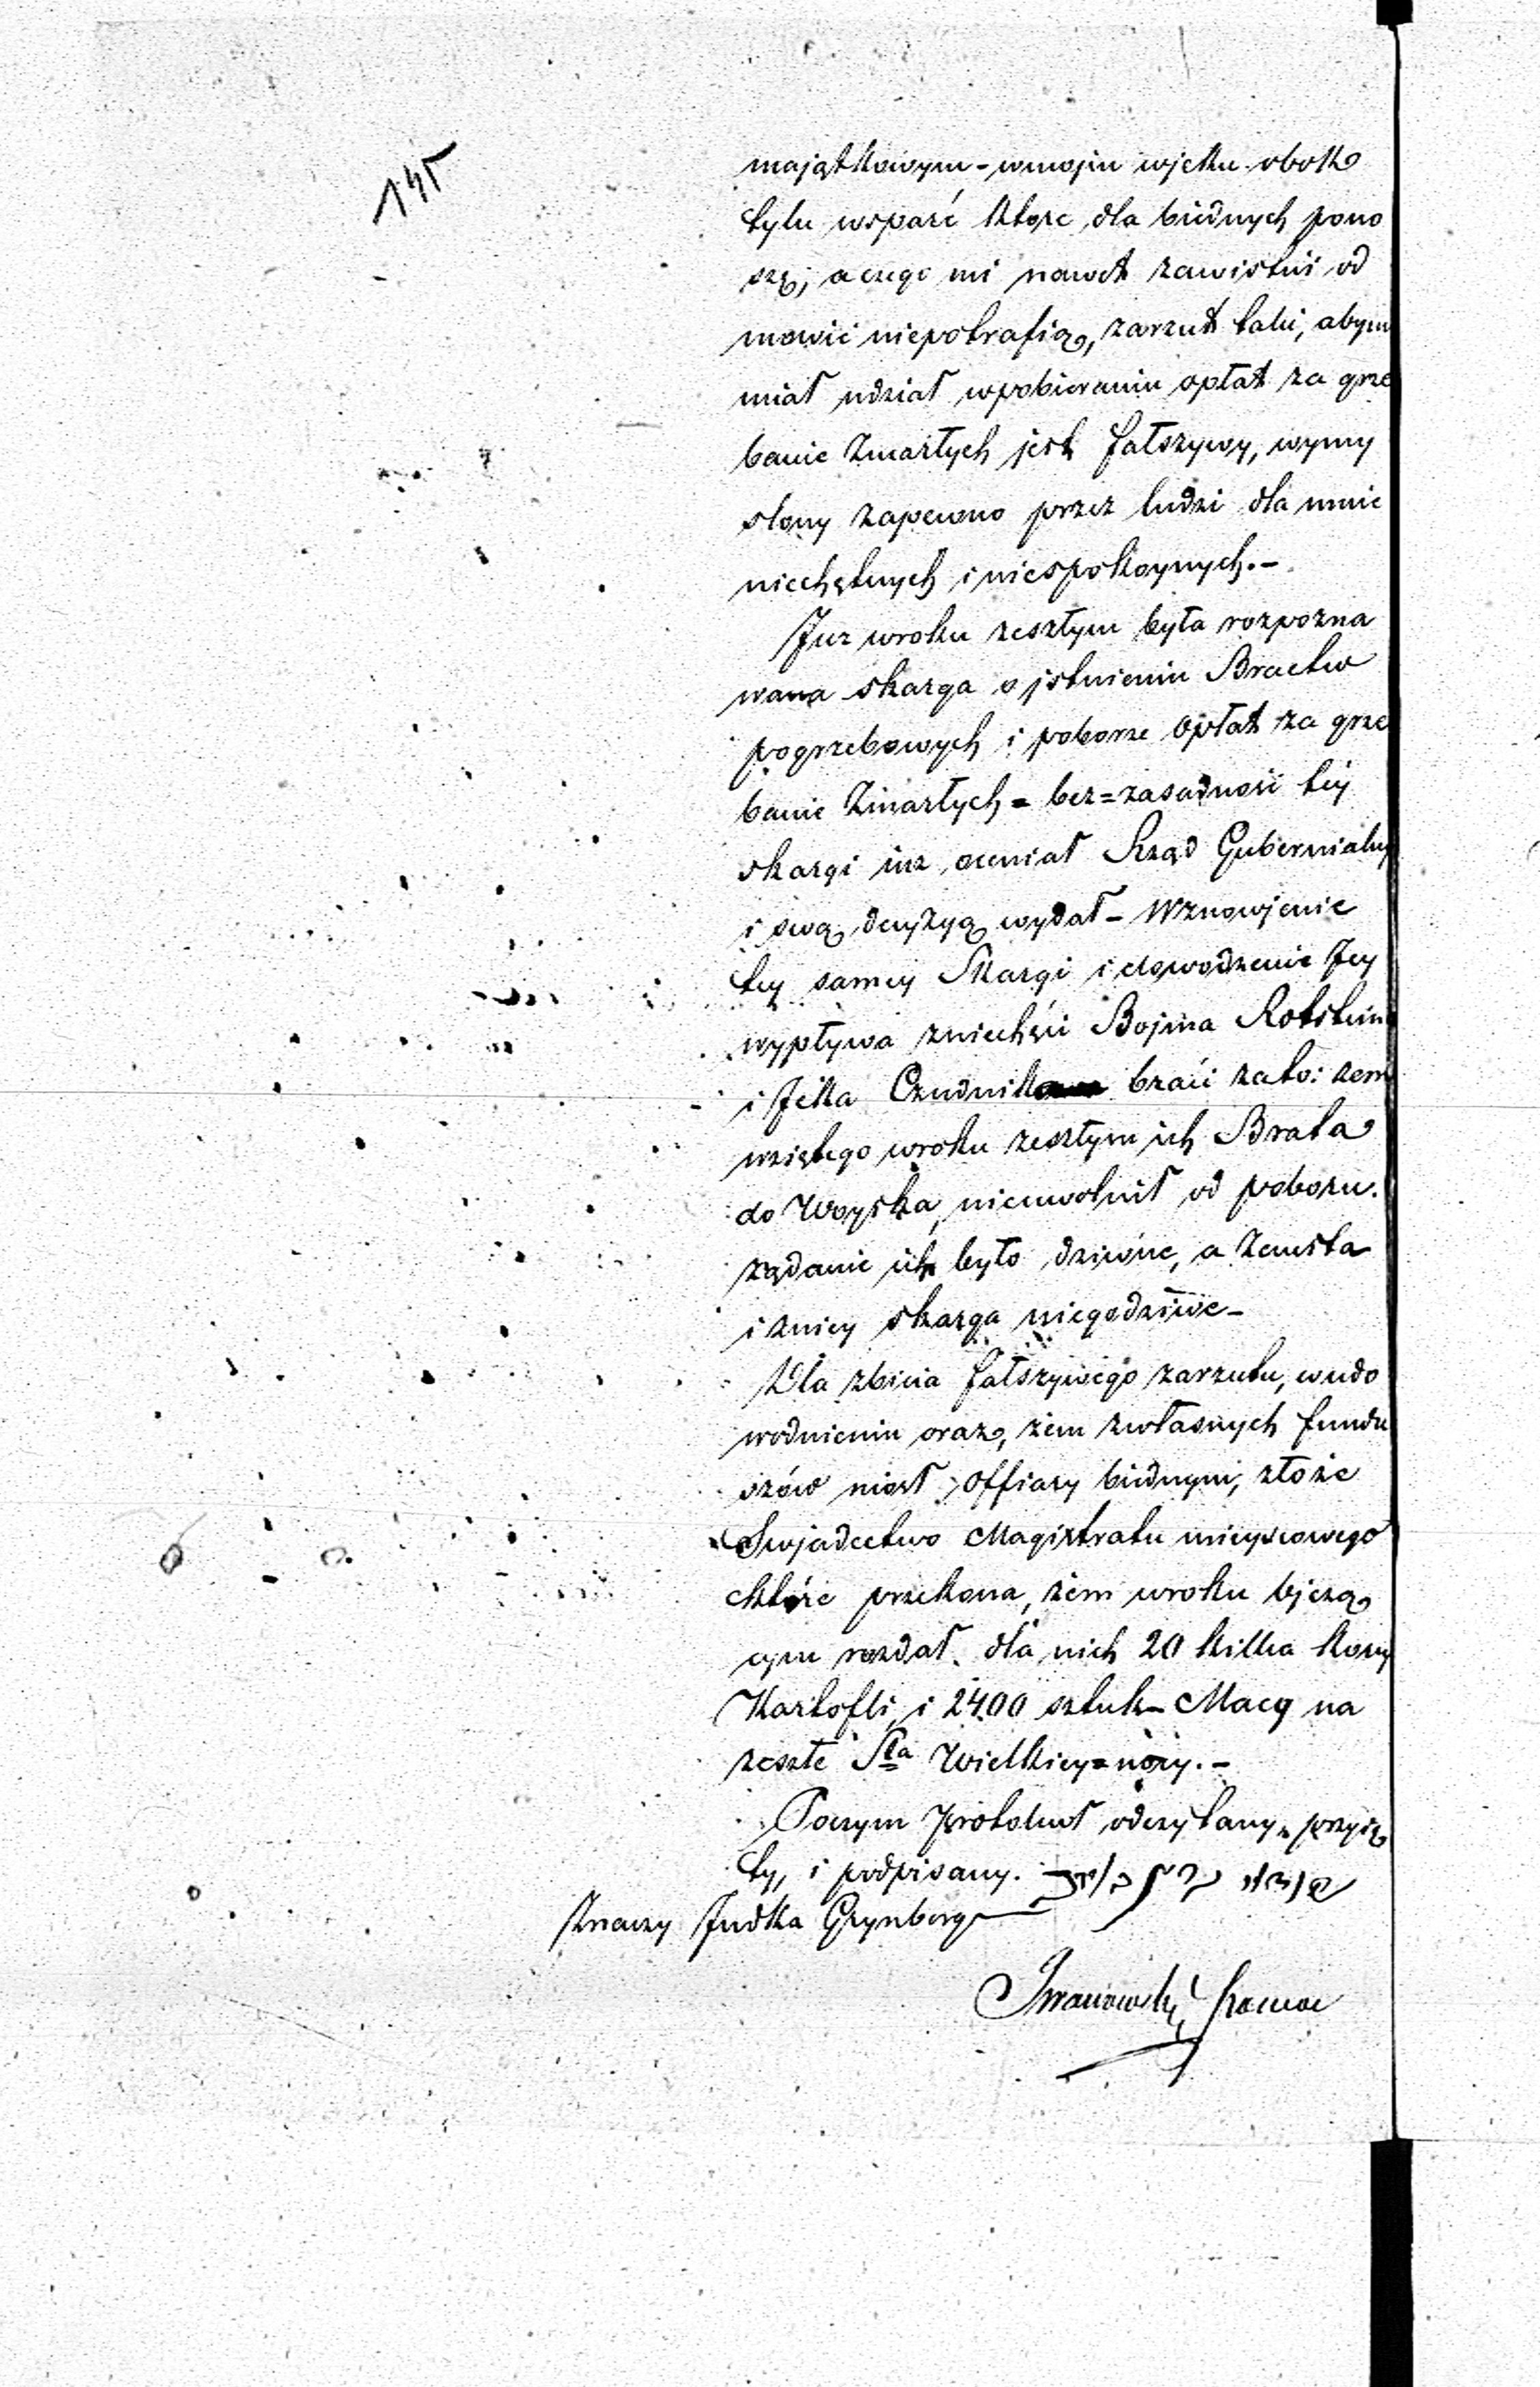 145
majątkowym - wmojm wjeku obok
tylu wsparć ktore dla biednych pono
szę, a czego mi nawet zawistni od
mowić niepotrafią, zarzut taki, abym
miał udział wpobieraniu opłat za grze
banie Zmarłych jest fałszywy, wymy
slony zapewno przez ludzi dla mnie
niechętnych i niespokoynych. -
Juz wroku zeszłym była rozpozna
wana skarga o jstnieniu Bractw
pogrzebowych i poborze opłat za grze
banie Zmarłych = bez=zasadność tey
skargi iuz oceniał Rząd Gubernialny
i swą decyzyą wydał - Wznowjenie
tey samey Skargi i dowodzenie Jey
wypływa zniechęci Bojma Rotsztein
i Jcka Czudnik braci zato: zem
wziętego wroku zeszłym ich Brata
do Woyska, nieuwolnił od poboru.
ządanie ich było dziwne, a Zemsta
i zniey skarga niegodziwe -
Dla zbicia fałszywego zarzutu, wudo
wodnieniu oraz, żem zwłasnych fundu
szów niosł offiary biednym, złoże
Swjadectwo Magistratu mieyscowego
które przekona, żem wroku bjeżą
cym rozdał dla nich 20 kilka korcy
Kartofli, i 2400 sztuk - Macy na
zeszłe Sta Wielkiey=nocy. -
Poczym Protokuł odczytany, przyię
ty, i podpisany.
Znaczy Judka Grynberg
Jwanowski